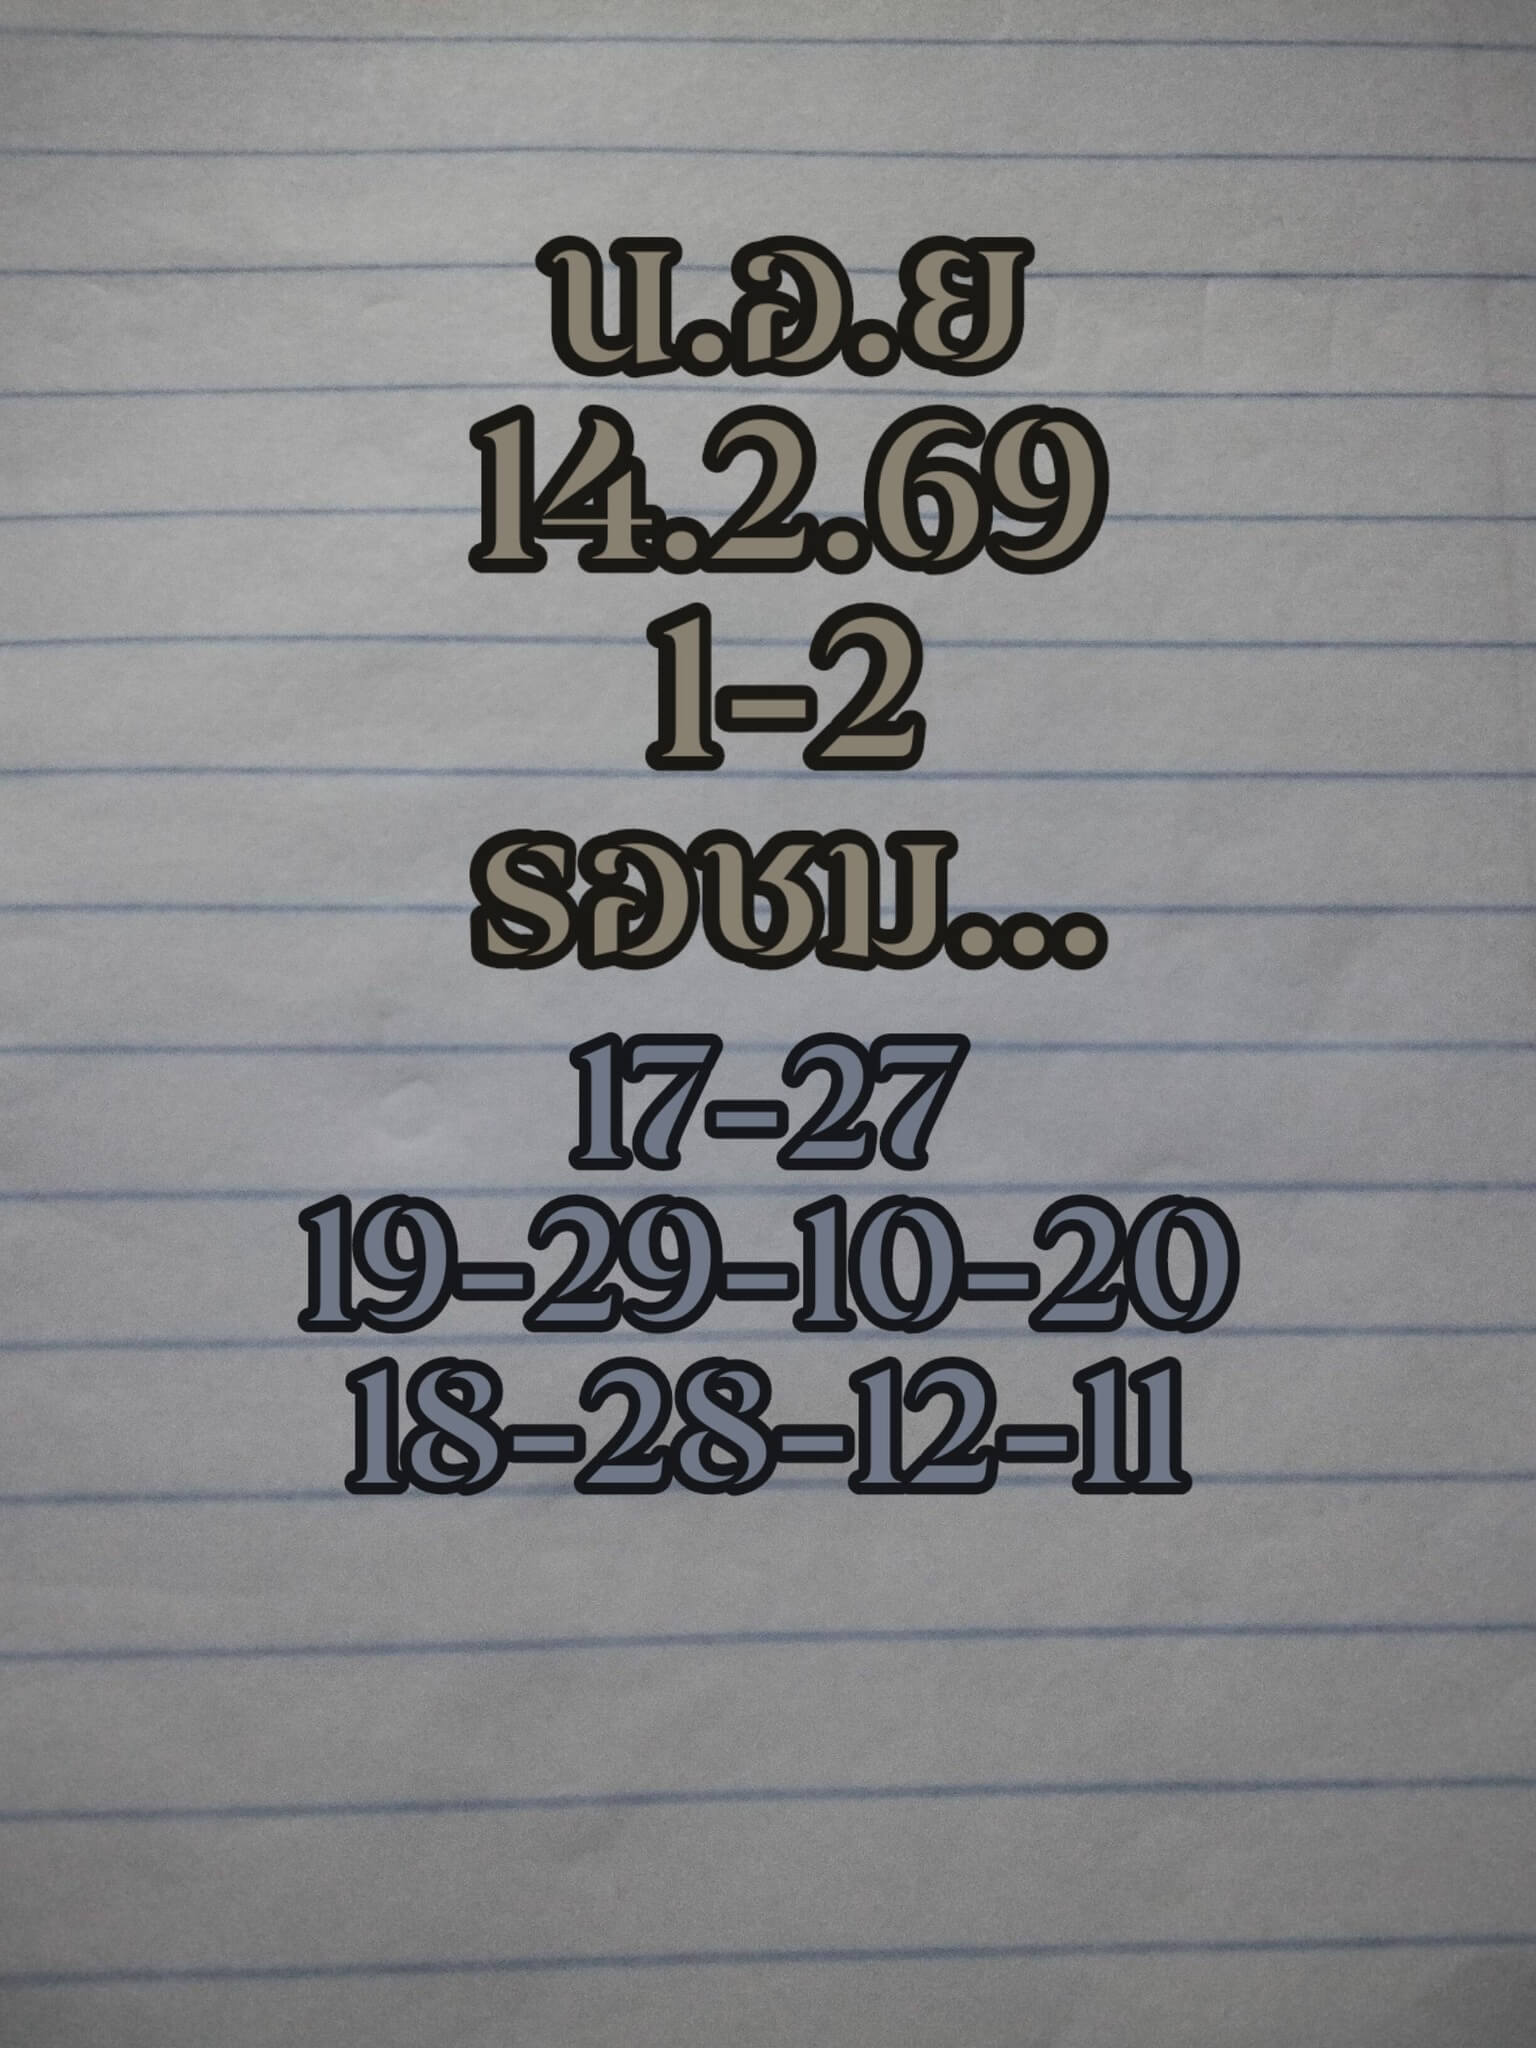 น.อ.ย
14.2.69
1-2
รอชม...
17-27
19-29-10-20
18-28-12-11